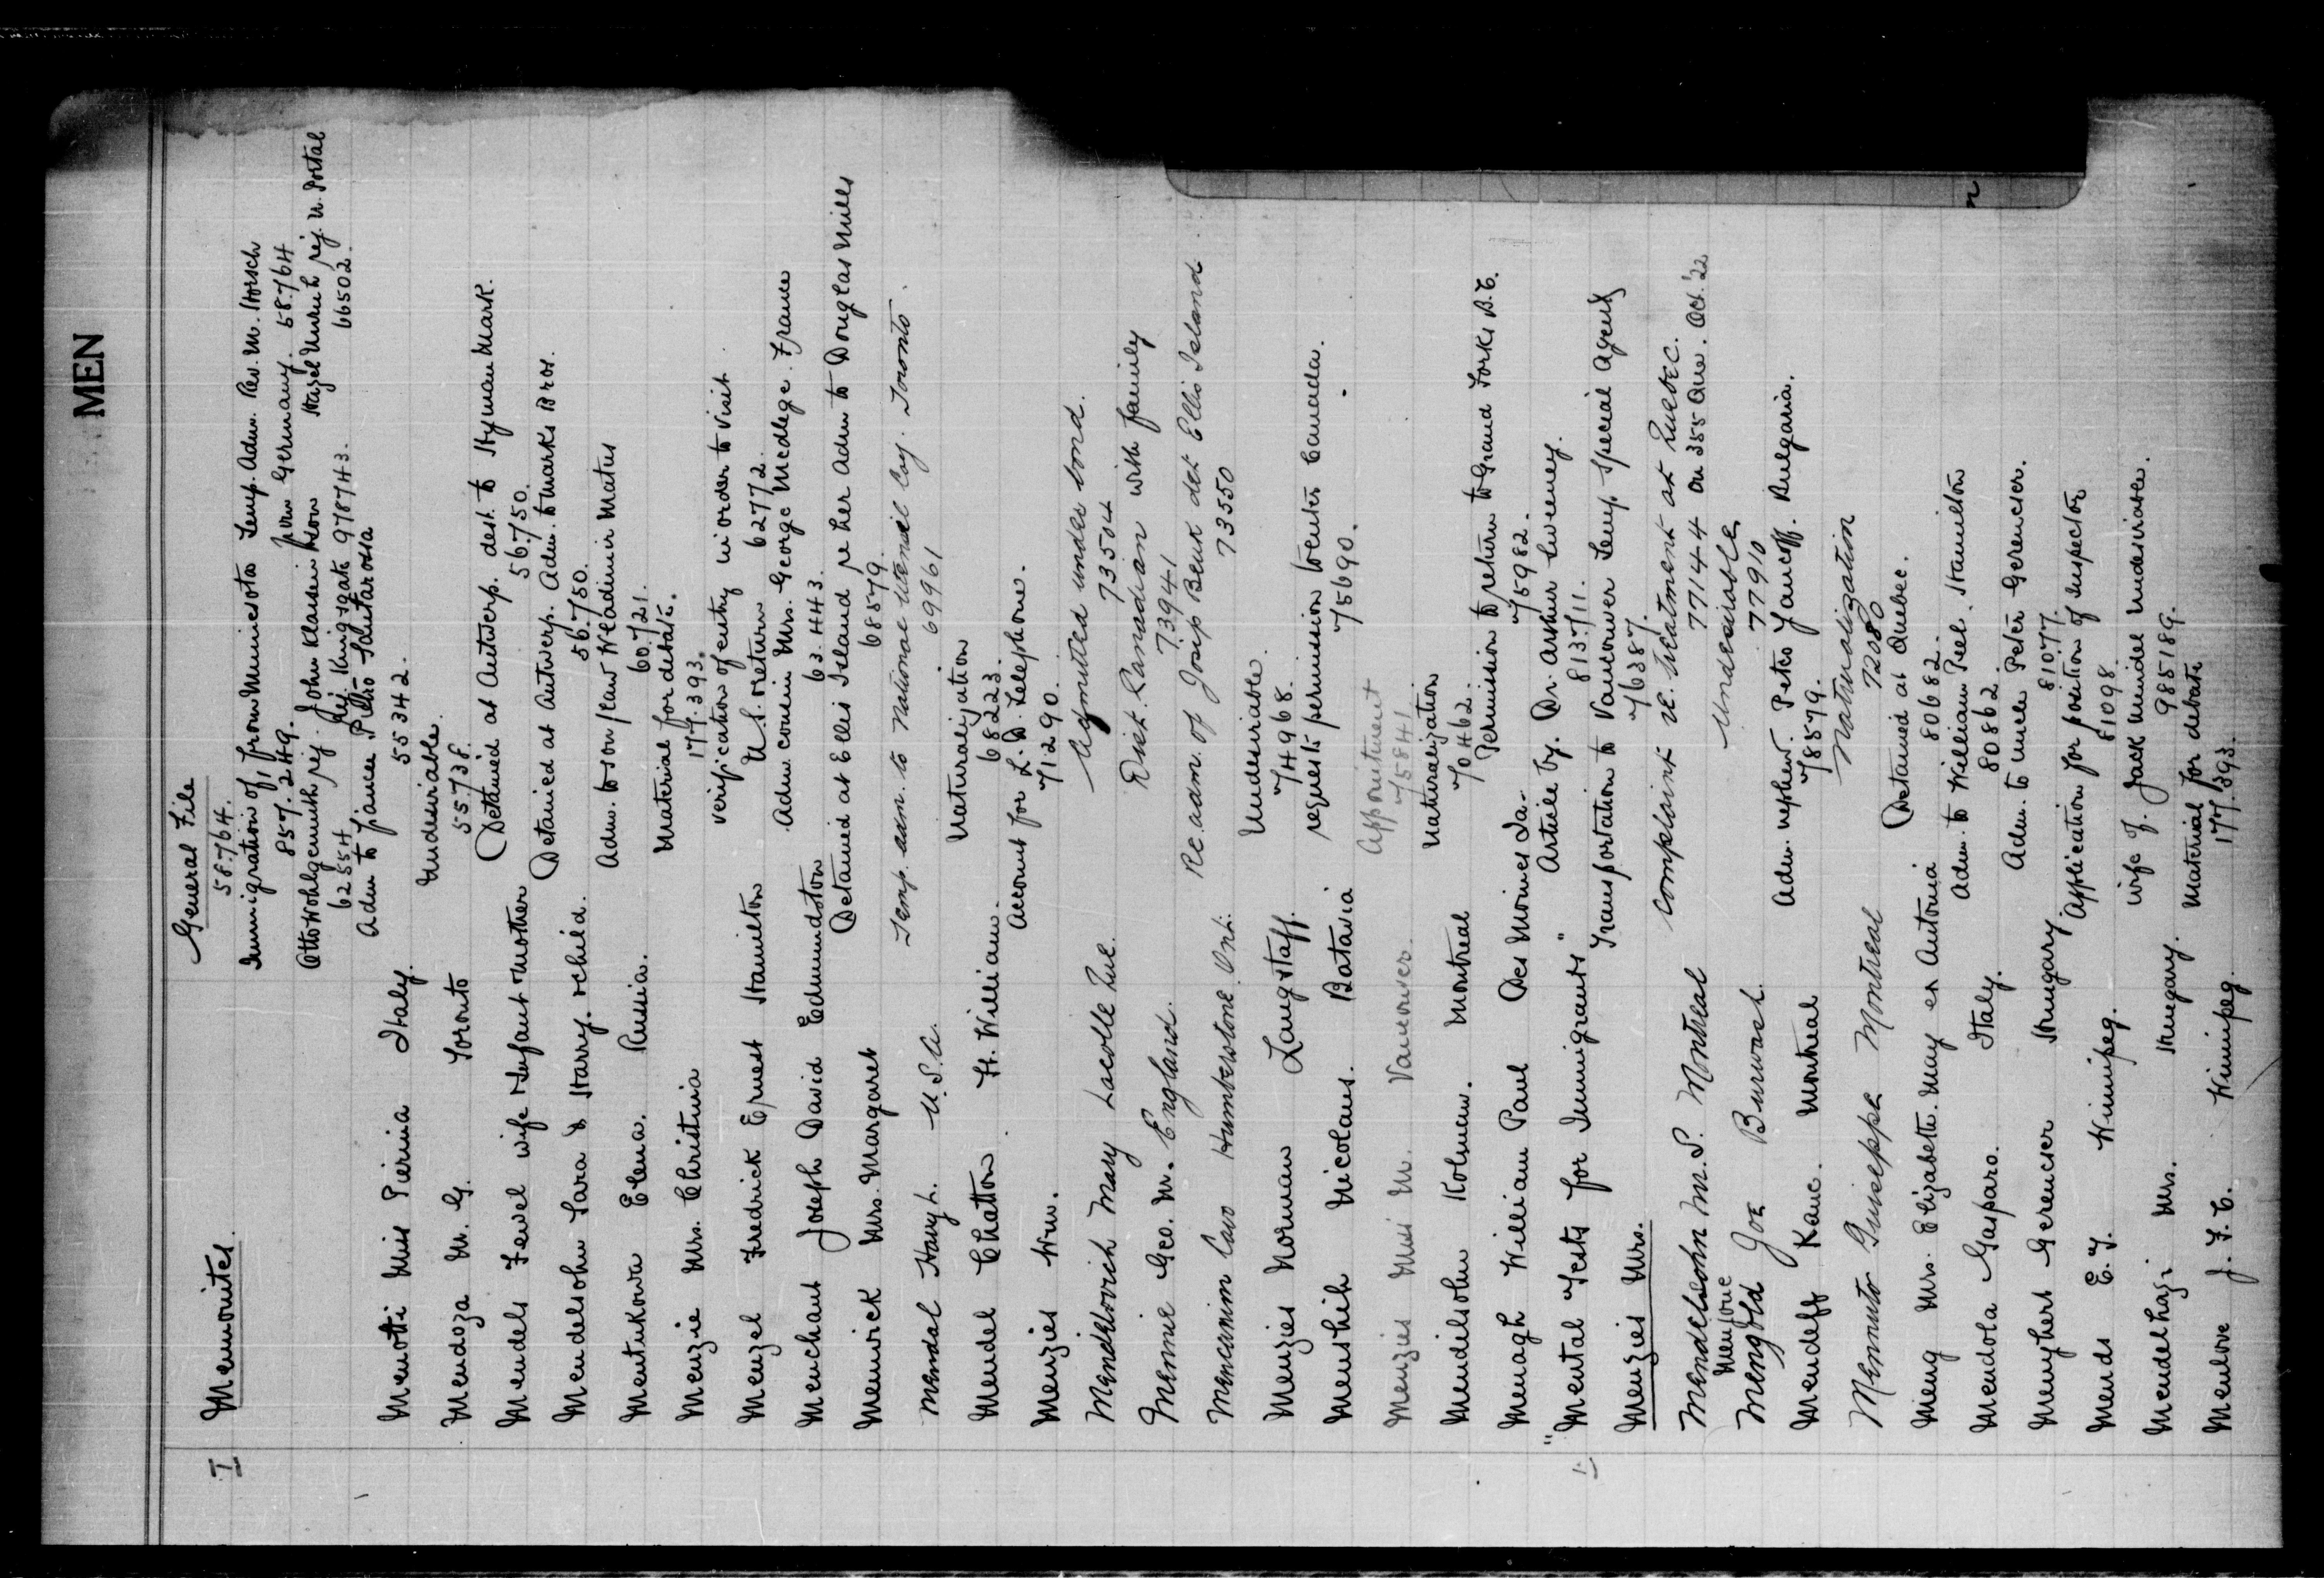 MEN
General File
I Mennonites. 58764.
Immigration of, from Minnesota Temp. Adm. Rev. M. Horsch
857.249. from Germany. 58764
Otto Wohlgemuth rej. John Klassen Hazel Unruh rej. N. Portal
62554 Rej. Kingsgate 978743. 66502.
Menotti Miss Pierina Italy. Adm to fiance Pietro Salutarossa
55342.
Mendoza M. G. Toronto Undesirable.
55738.
Mendels Fewel wife & Infant & Mother Detained at Antwerp. dest. to Hyman Mark.
56750.
Mendelsohn Sara & Harry. & child. Detained at Antwerp. Adm. to Marks Bros.
56750.
Mentukowa Elena. Russia. Adm. to son/law Wladimir Matus
60721.
Menzie Mrs. Christina Material for debate.
177.393.
Menzel Fredrick Ernest Hamilton verification of entry in order to visit
U.S. & return 62772.
Menchant Joseph David Edmundston Adm cousin Mrs. George Medlege. France
63.443.
Menwick Mrs. Margaret Detained at Ellis Island re her Adm to Douglas Mills
68579.
Mendal Harry L. U.S.A. Temp. adm. to National Utensil Coy. Toronto.
69961
Mendel Chatton. Ft. William. Naturalization
68223.
Menzies Wm. Account for L.D. Telephone.
71290.
Mendelovich Mary Lacolle Que. Admitted under bond.
73504
Mennie Geo. M. England. Dist. Canadian with family
73941
Mencinim Cavo Humberstone Ont. Re adm. of Josip Benk det Ellis Island
73550
Menzies Norman Langstaff. Undesirable.
74968.
Menshih Nicolaus. Batavia requests permission to enter Canada.
75690.
Menzies Miss M. Vancouver. Appointment
75841
Mendilsohn Kolman. Montreal Naturalization
70462.
Menagh William Paul Des Moines Ia. Permission to return to Grand Forks B.C.
75982.
"Mental Tests for Immigrants" Article by. Dr. Arthur Sweeney.
81371 1.
Menzies Mrs. Transportation to Vancouver Temp. Special Agent
76387.
Mendelsohn M. S. Montreal Complaint re. treatment at Quebec.
77144 on 355 Que. Oct. '22
Menjoue
Mengold Joe Burwash. Undesirable
77910
Mendeff Kanc. Montreal Adm. nephew. Petco Yancoff. Bulgaria.
78579.
Mennuto Guiseppe Montreal Naturalization
72080
Meng Mrs. Elizabeth. May ex Antonia Detained at Quebec.
80682.
Mendola Gasparo. Italy. Adm. to William Peel. Hamilton
80862
Menyhert Gerencser Hungary Adm. to uncle Peter Gerencser.
81077.
Mends E. Y. Winnipeg. Application for position of Inspector
81098
Mendelhazi Mrs. Hungary. wife of. Jack Mindel undesirable.
985189.
Menlove J. F. C. Winnipeg. Material for debate
177.393.